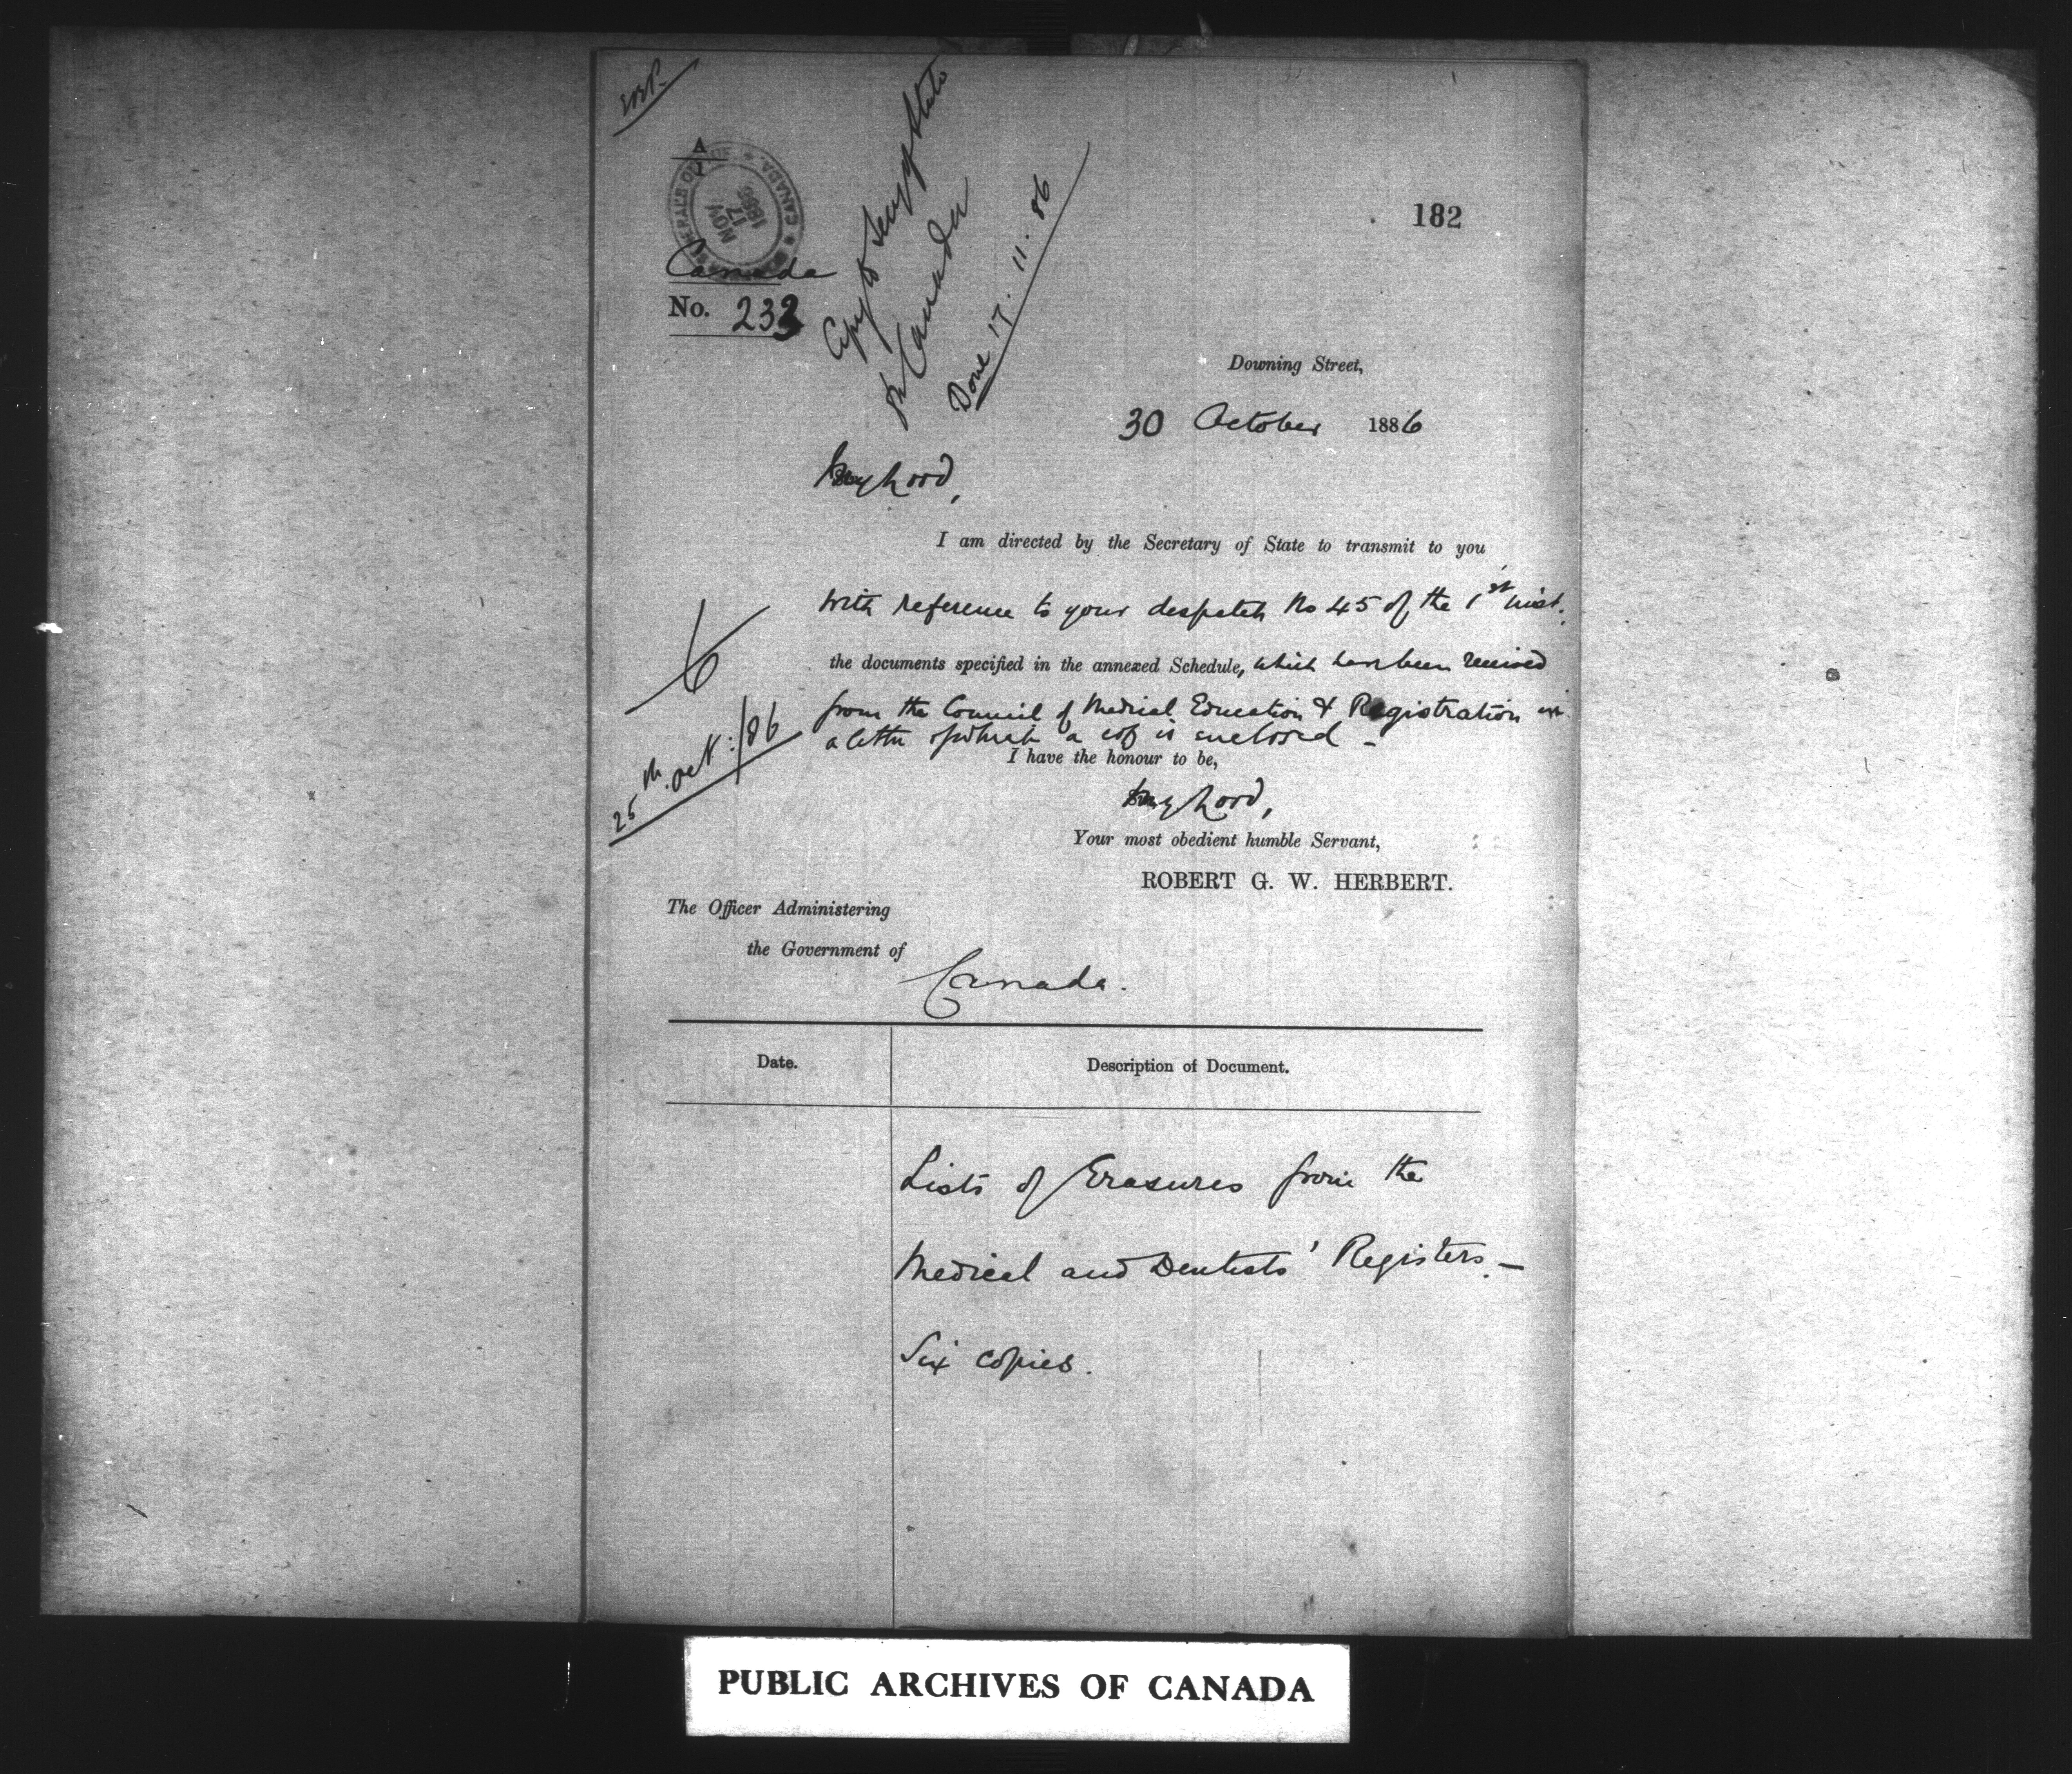 A
GOVERNOR GENERAL'S OFFICE
CANADA
NOV
17
1886
Canada
No. 233
Copy to Secy of State
for Canada
Done 17.11.86
182
Downing Street,
30 October 1886
My Lord,
I am directed by the Secretary of State to transmit to you
with reference to your despatch No 45 of the 1st inst.
the documents specified in the annexed Schedule, which have been received
from the Council of Medical Education & Registration in
a letter of which a copy is enclosed –
25th Oct:/86
I have the honour to be,
My Lord,
Your most obedient humble Servant,
ROBERT G. W. HERBERT.
The Officer Administering
the Government of
Canada.
Date.
Description of Document.
Lists of Erasures from the
Medical and Dentists' Registers. –
Six copies.
PUBLIC ARCHIVES OF CANADA